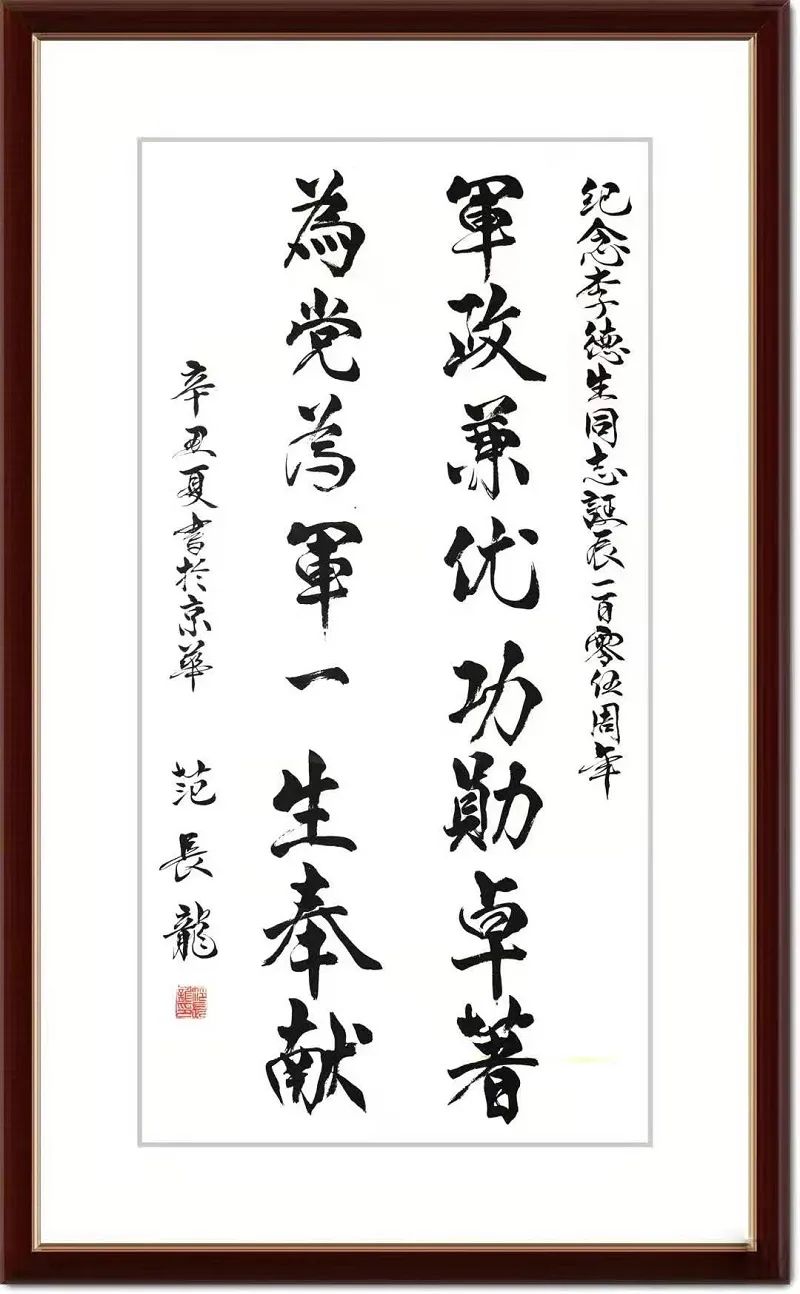 纪念李德生同志誕辰一百零伍周年
軍政兼优功勛卓著
為党為軍一生奉献
辛丑夏書於京華
范長龍